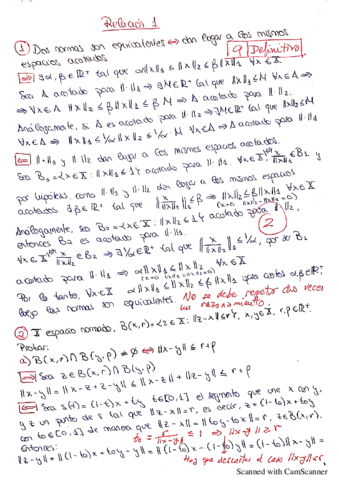 Relación 1
① Dos normas son equivalentes ⟺ dan lugar a los mismos
espacios acotados
9 Definitivo
⟹ ∃α, β ∈ ℝ⁺ tal que α‖x‖₁ ≤ ‖x‖₂ ≤ β‖x‖₁ ∀x ∈ X
Sea A acotado para ‖·‖₁ ⟹ ∃M∈ℝ⁺ tal que ‖x‖₁≤M ∀x∈A ⟹
⟹ ∀x∈A ‖x‖₂ ≤ β‖x‖₁ ≤ βM ⟹ A acotado para ‖·‖₂.
Análogamente, si A es acotado para ‖·‖₂ ⟹ ∃M∈ℝ⁺ tal que ‖x‖₂≤M
∀x∈A ⟹ ‖x‖₁ ≤ 1/α ‖x‖₂ ≤ 1/α · M ∀x∈A ⟹ A acotado para ‖·‖₁
⟸ ‖·‖₁ y ‖·‖₂ dan lugar a los mismos espacios acotados.
Sea B₁ = {x∈X : ‖x‖₁ ≤ 1} acotado para ‖·‖₁. ∀x∈X x/‖x‖₁ ∈ B₁ y
por hipótesis, como ‖·‖₁ y ‖·‖₂ dan lugar a los mismos espacios
acotados ∃β∈ℝ⁺ tal que ‖x/‖x‖₁‖₂ ≤ β ⟹ ‖x‖₂ ≤ β‖x‖₁ ∀x∈X
(x=0 ‖x‖₂=‖x‖₁=0)
Análogamente, sea B₂ = {x∈X : ‖x‖₂ ≤ 1} acotado para ‖·‖₂,
②
entonces B₂ es acotado para ‖·‖₁.
∀x∈X x/‖x‖₂ ∈ B₂ ⟹ ∃1/α∈ℝ⁺ tal que ‖x/‖x‖₂‖₁ ≤ 1/α, por ser B₂
acotado para ‖·‖₁ ⟹ α‖x‖₁ ≤ ‖x‖₂ ∀x∈X
(x=0 ‖x‖₁=‖x‖₂=0)
Por lo tanto, ∀x∈X α‖x‖₁ ≤ ‖x‖₂ ≤ β‖x‖₁ para ciertos α,β∈ℝ⁺
luego las normas son equivalentes. No se debe repetir dos veces
un razonamiento.
② X espacio normado, B(x,r)={z∈X : ‖z-x‖≤r}, x,y∈X, r,ρ∈ℝ⁺.
Probar:
a) B(x,r) ∩ B(y,ρ) ≠ ∅ ⟺ ‖x-y‖ ≤ r+ρ
⟹ Sea z∈B(x,r)∩B(y,ρ)
‖x-y‖ = ‖x-z+z-y‖ ≤ ‖x-z‖+‖z-y‖ ≤ r+ρ
⟸ Sea s(t) = (1-t)x + ty t∈[0,1] el segmento que une x con y,
y z un punto de s tal que ‖z-x‖=r, es decir, z=(1-t₀)x+t₀y
con t₀∈[0,1] de manera que ‖z-x‖ = ‖t₀y-t₀x‖=r, z∈B(x,r).
t₀ = r/‖x-y‖ ≤ 1 ⟹ ‖x-y‖ ≥ r
Entonces:
‖z-y‖ = ‖(1-t₀)x + t₀y - y‖ = ‖(1-t₀)x - (1-t₀)y‖ = (1-t₀)‖x-y‖ =
Hay que descartar el caso ‖x-y‖<r.
Scanned with CamScanner